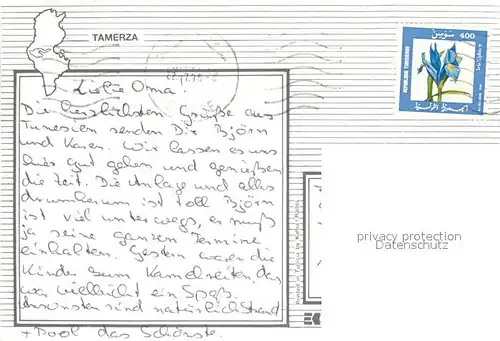 TAMERZA
400
Liebe Oma!
Die herzlichsten Grüße aus
Tunesien senden Dir Björn
und Karen. Wir lassen es uns
hier gut gehen und genießen
die Zeit. Die Anlage und alles
drumherum ist toll Björn
ist viel unterwegs, er muß
ja seine ganzen Termine
einhalten. Gestern waren die
Kinder zum Kamelreiten, das
war vielleicht ein Spaß.
Ansonsten sind natürlich Strand
+ Pool das Schönste.
privacy protection
Datenschutz